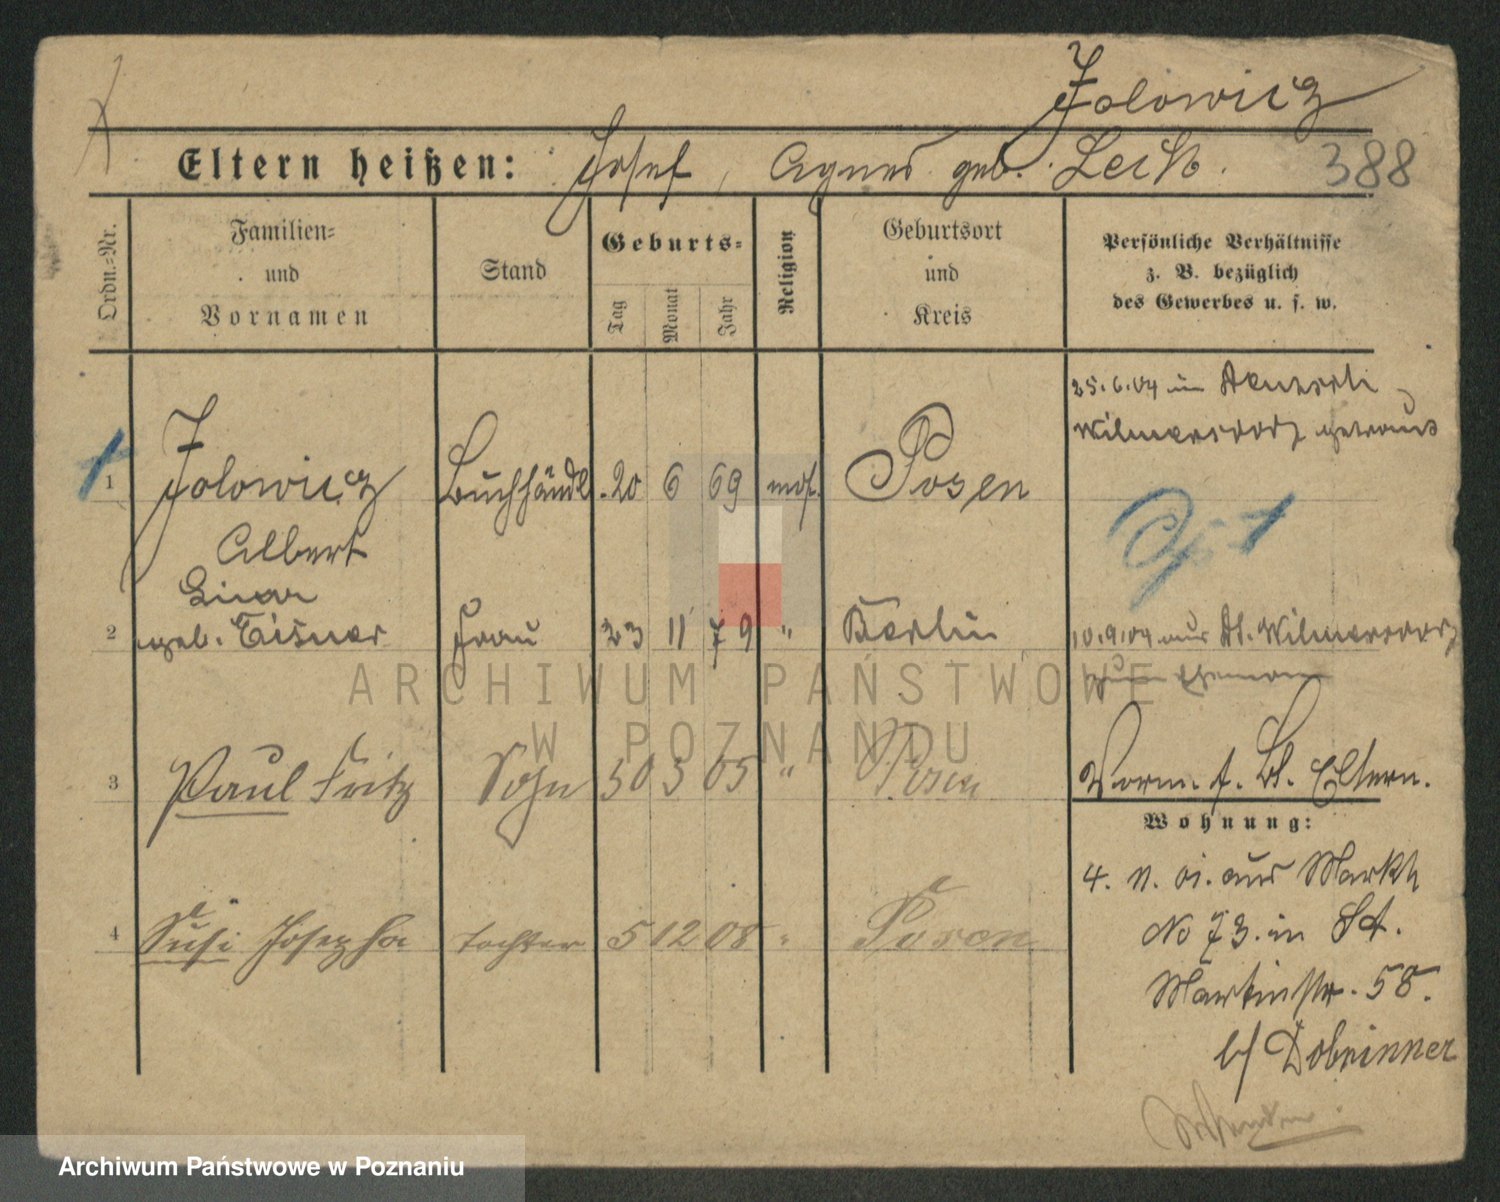 Jolowicz
Eltern heißen: Josef, Agnes geb. Leik.
388
Ordn.=Nr.
Familien=
und
Vornamen
Stand
Geburts=
Tag
Monat
Jahr
Religion
Geburtsort
und
Kreis
Persönliche Verhältnisse
z. B. bezüglich
des Gewerbes u. s. w.
25.6.04 in Deutsch
Wilmersdorf getraut
1 Jolowicz Buchhändl. 20 6 69 mos. Posen
Albert
2 geb. Eisner Frau 23 11 79 " Berlin
10.9.04 aus Dt. Wilmersdorf
zum Ehemann
3 Paul Fritz Sohn 30 3 05 " Posen
Vorm. f. Bl. Eltern.
Wohnung:
4 Susi Josepha Tochter 5 12 08 " Posen
4. N. 01. aus Markt
No 73. in St.
Martinstr. 58.
b/ Dobrinner
ARCHIWUM PAŃSTWOWE
W POZNANIU
Archiwum Państwowe w Poznaniu